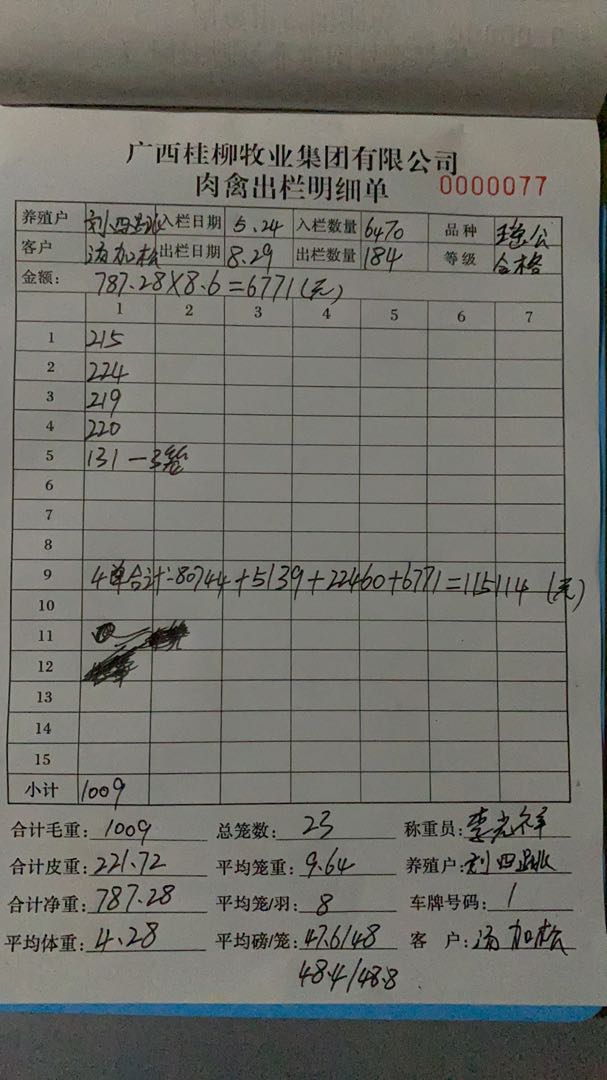 广西桂柳牧业集团有限公司
肉禽出栏明细单 0000077
养殖户 刘四 入栏日期 5.24 入栏数量 6470 品种 公
客户 汤加松 出栏日期 8.29 出栏数量 184 等级 合格
金额: 787.28×8.6=6771(元)
1 2 3 4 5 6 7
1 215
2 224
3 219
4 220
5 131 一3笼
6
7
8
9 4单合计:80744+5139+22460+6771=115114(元)
10
11
12
13
14
15
小计 1009
合计毛重: 1009 总笼数: 23 称重员: 李光祥
合计皮重: 221.72 平均笼重: 9.64 养殖户: 刘四
合计净重: 787.28 平均笼/羽: 8 车牌号码: 1
平均体重: 4.28 平均磅/笼: 47.6/48 客户: 汤加松
48.4/48.8